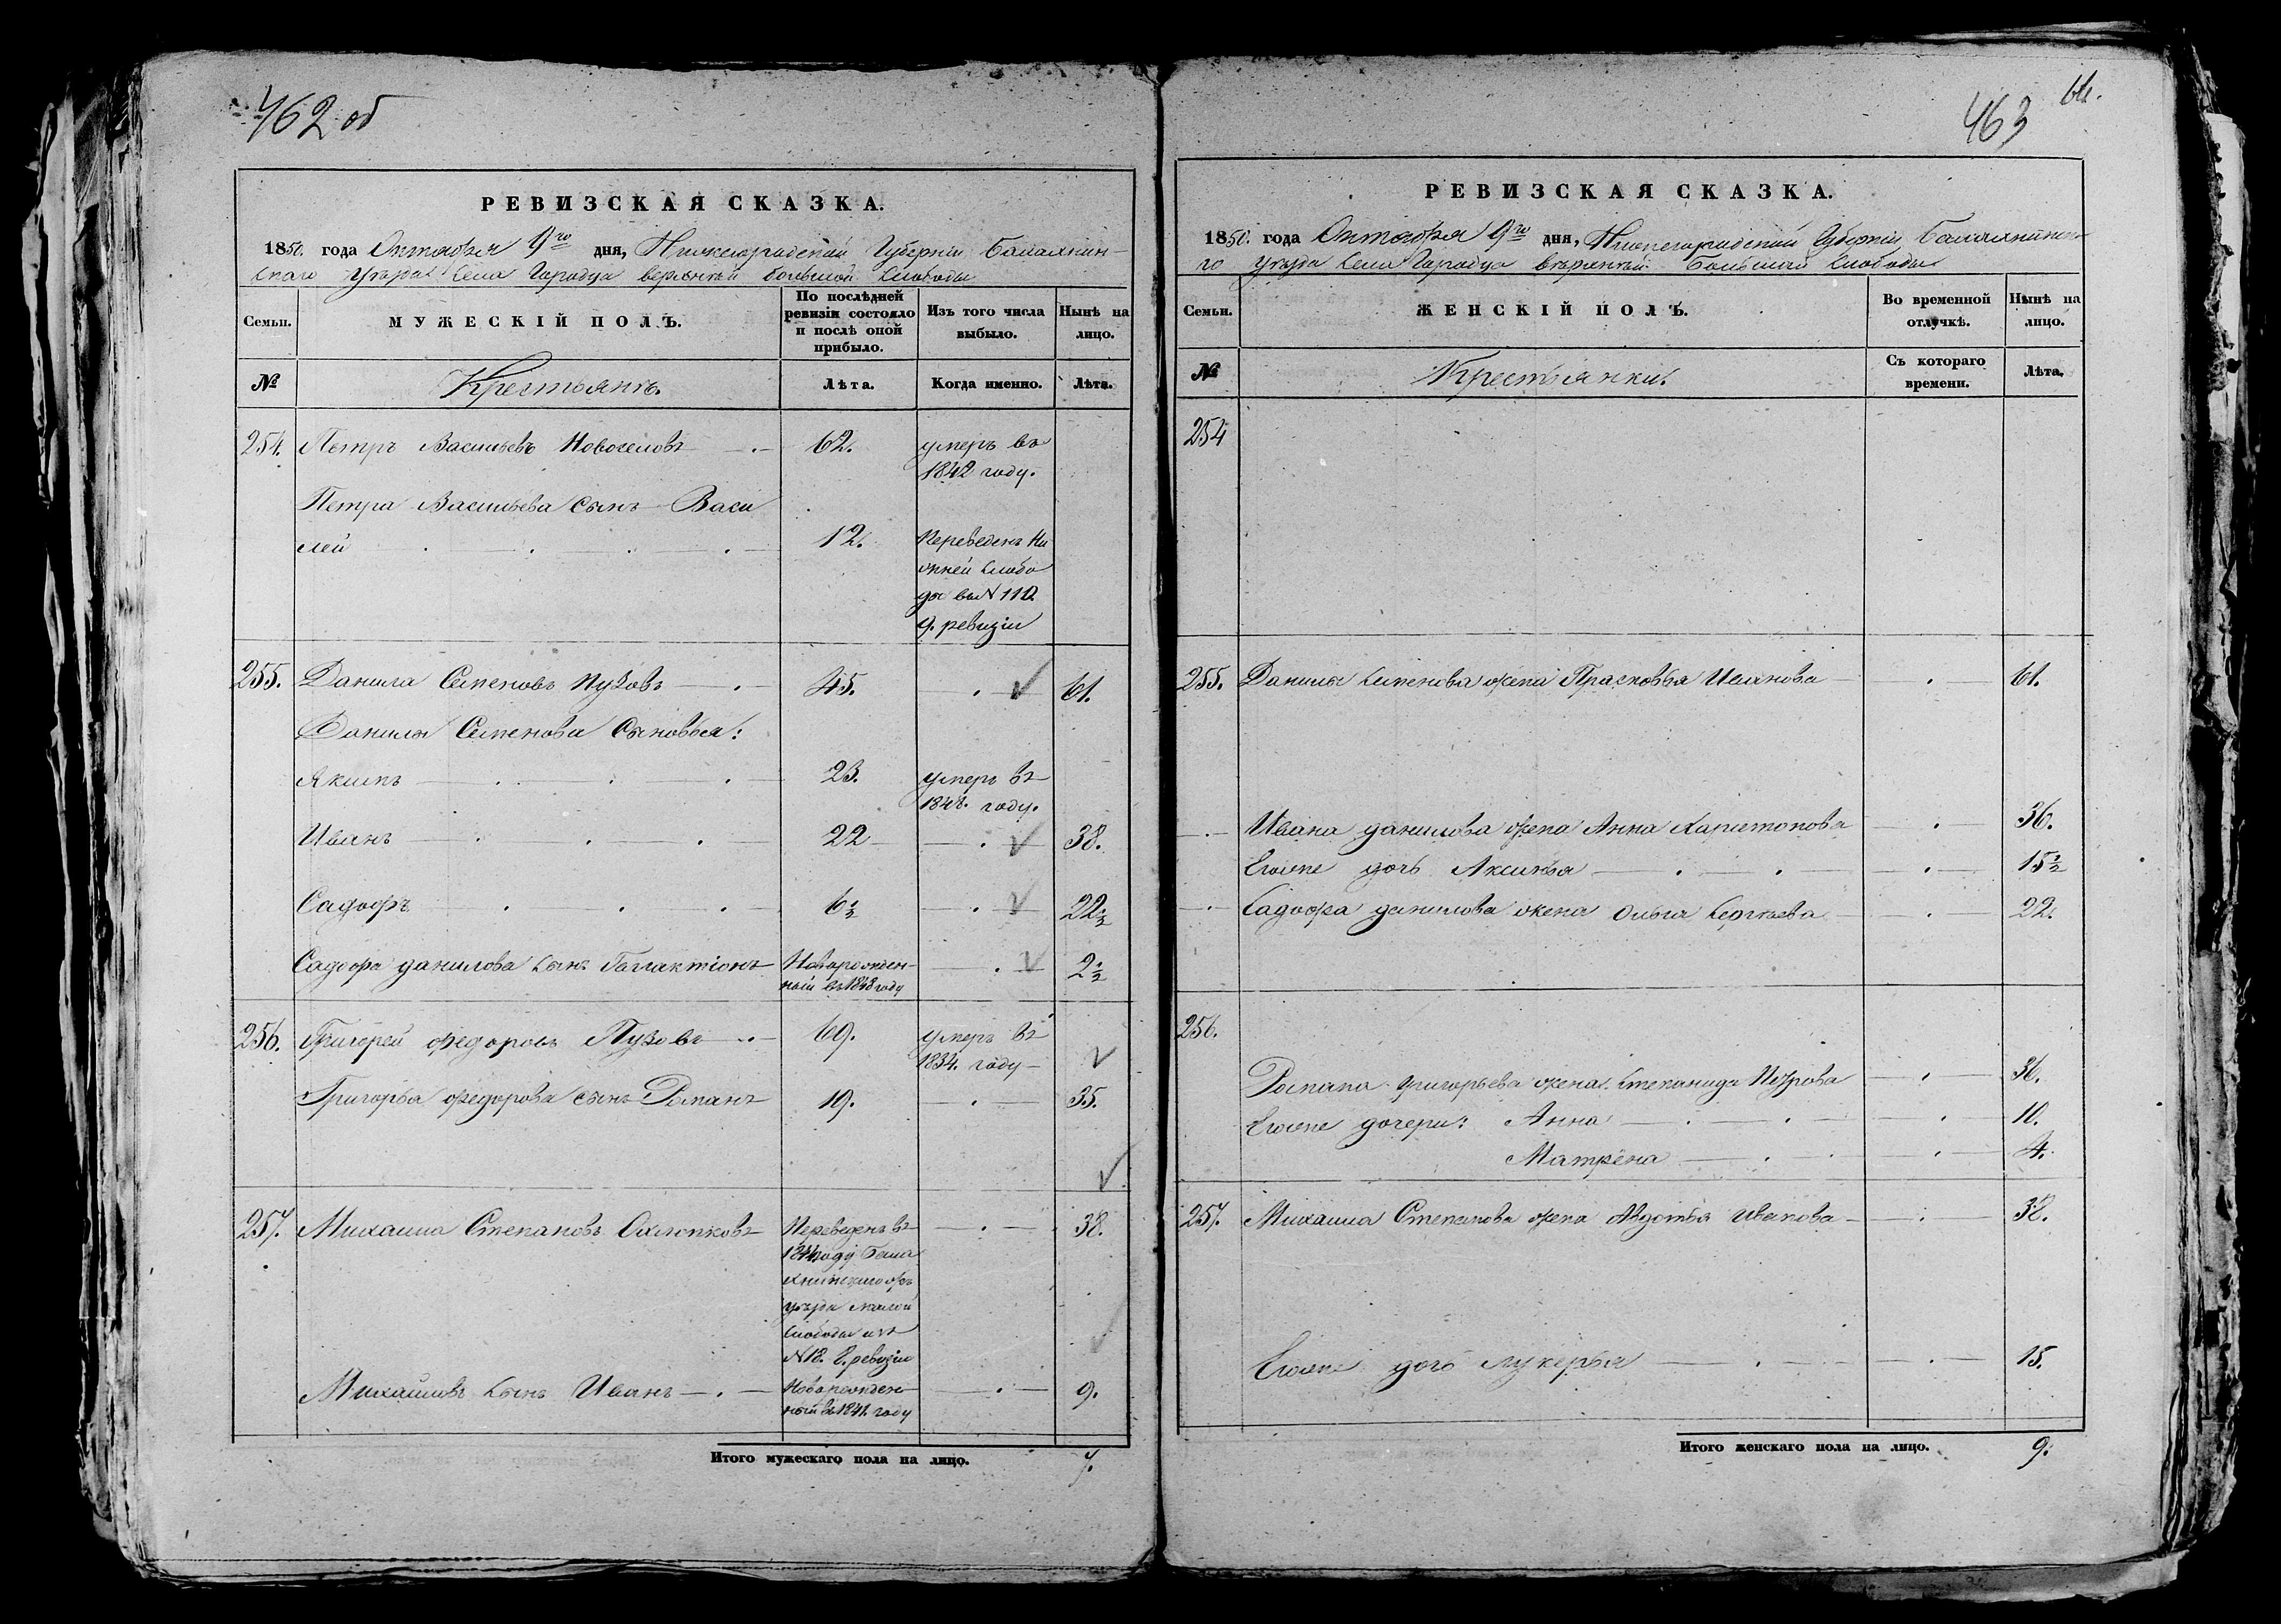 462 об
РЕВИЗСКАЯ СКАЗКА.
1850. года Октября 9го дня, Нижегородской Губерніи Балахнин-
скаго Уѣзда Села Городца верхней большой Слободы
Семьи.
МУЖЕСКІЙ ПОЛЪ.
По послѣдней
ревизіи состояло
и послѣ оной
прибыло.
Изъ того числа
выбыло.
Нынѣ на
лицо.
№
Крестьянъ.
Лѣта.
Когда именно.
Лѣта.
254. Петръ Васильевъ Новоселовъ 62. умеръ въ
1842 году.
Петра Васильева сынъ Васи
лей 12. Переведенъ Ни
жней Слобо
ды въ № 110
9. ревизіи
255. Данила Семеновъ Пузовъ 45. 61.
Данилы Семенова Сыновья:
Якимъ 23. умеръ въ
1848. году.
Иванъ 22 38.
Садофъ 6½ 22½
Садофа данилова сынъ Галактіонъ Новорожден-
ный въ 1848 году 2½
256. Григорей федоровъ Пузовъ 69. умеръ въ
1834. году
Григорья федорова сынъ Романъ 19. 35.
257. Михаила Степановъ Охлопковъ Переведенъ въ 38.
1844 году Бала
хнинскаго
уѣзда малой
Слободы изъ
№ 18. 8. ревизіи
Михайловъ сынъ Иванъ Новорожден-
ный въ 1841 году 9.
Итого мужескаго пола на лицо. 7.
463
РЕВИЗСКАЯ СКАЗКА.
1850. года Октября 9го дня, Нижегородской Губерніи, Балахнинска
го Уѣзда Села Городца верхней Большой Слободы
Семьи.
ЖЕНСКІЙ ПОЛЪ.
Во временной
отлучкѣ.
Нынѣ на
лицо.
№
Крестьянки.
Съ котораго
времени.
Лѣта.
254
255. Данилы Семенова жена Прасковья Иванова 61.
Ивана данилова жена Анна Харитонова 36.
Егоже дочь Аксинья 15½
Садофа данилова жена Ольга Сергѣева 22.
256.
Романа Григорьева жена Степанида Петрова 36.
Егоже дочери: Анна 10.
Матрена 4.
257. Михаила Степанова жена Авдотья Иванова 38.
Егоже дочь Лукерья 15.
Итого женскаго пола на лицо. 9.